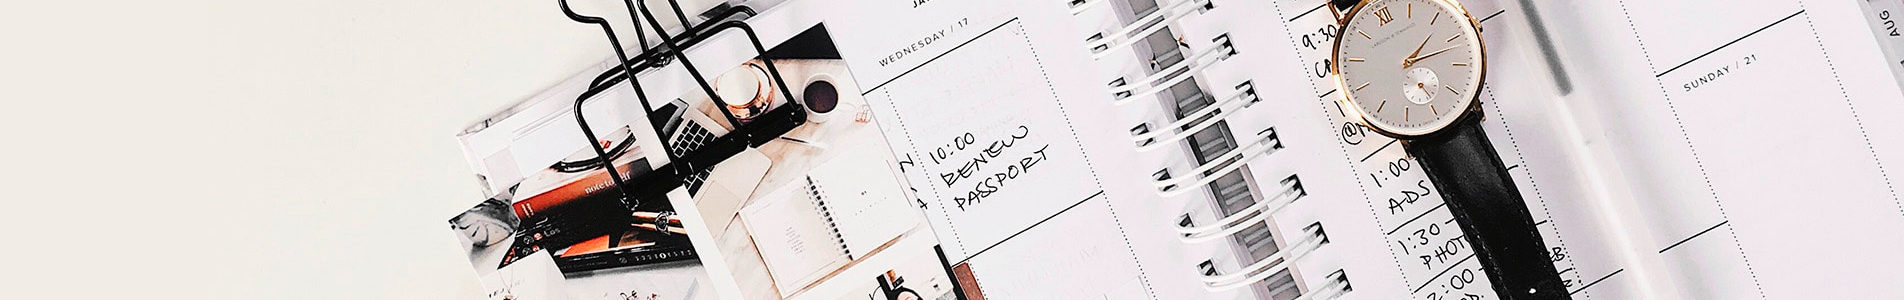 WEDNESDAY / 17
10:00
RENEW
PASSPORT
note to self
9:30
XII
1:00
ADS
1:30
2:00
SUNDAY / 21
AUG